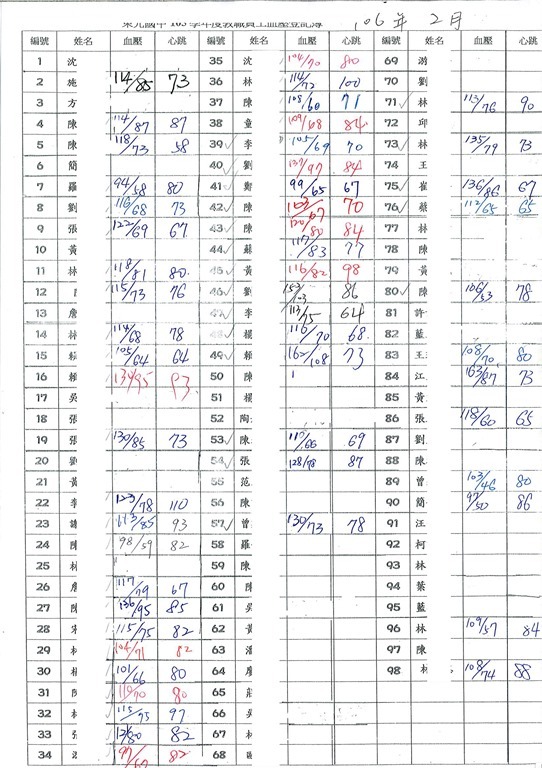 東光國中 105 學年度教職員工血壓登記簿 106年 2月
編號 姓名 血壓 心跳 編號 姓名 血壓 心跳 編號 姓名 血壓 心跳
1 沈 35 沈 104/70 80 69 游
2 施 114/85 73 36 林 114/72 100 70 劉
3 方 37 陳 108/60 71 71 林 113/76 90
4 陳 114/87 87 38 童 109/68 84 72 邱
5 陳 118/73 58 39 李 105/69 70 73 林 135/79 73
6 簡 40 劉 137/97 84 74 王
7 羅 94/58 80 41 鄭 99/65 67 75 崔 136/86 67
8 劉 116/68 73 42 陳 103/67 70 76 蔡 112/65 65
9 張 122/69 67 43 陳 120/80 84 77 林
10 黃 44 蘇 117/83 77 78 陳
11 林 118/81 80 45 黃 116/82 98 79 黃
12 115/73 76 46 劉 153/103 86 80 陳 106/53 78
13 詹 47 李 113/75 64 81 許
14 林 114/68 78 48 楊 116/70 68 82 藍
15 賴 105/64 64 49 賴 162/108 73 83 王 108/70 80
16 賴 134/95 93 50 陳 84 江 163/87 73
17 吳 51 楊 85 黃
18 張 52 陶 86 張 118/60 65
19 張 130/85 73 53 陳 110/66 69 87 劉
20 劉 54 張 128/78 87 88 陳
21 黃 55 范 89 曾 103/46 80
22 李 123/78 110 56 陳 90 簡 97/50 86
23 諸 113/85 93 57 曾 130/73 78 91 汪
24 陳 98/59 82 58 羅 92 柯
25 林 59 陳 93 林
26 詹 117/79 67 60 陳 94 葉
27 陳 136/95 85 61 吳 95 藍
28 宋 115/75 82 62 黃 96 林 109/57 84
29 104/71 82 63 潘 97 陳
30 楊 101/66 80 64 廖 98 林 108/74 88
31 陳 110/70 80 65 莊
32 林 115/75 97 66 吳
33 張 126/80 82 67 林
34 97/67 82 68